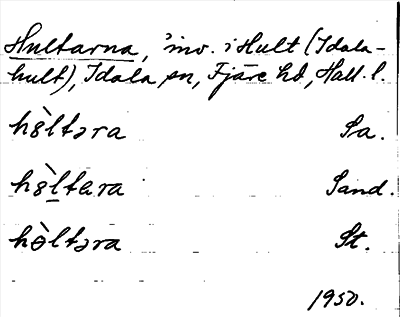 Hultarna, 'inv. i Hult (Idala-
hult), Idala sn, Fjäre hd, Hall. l.
hòltəra Sa.
hòltara Sand.
hòltəra St.
1950.